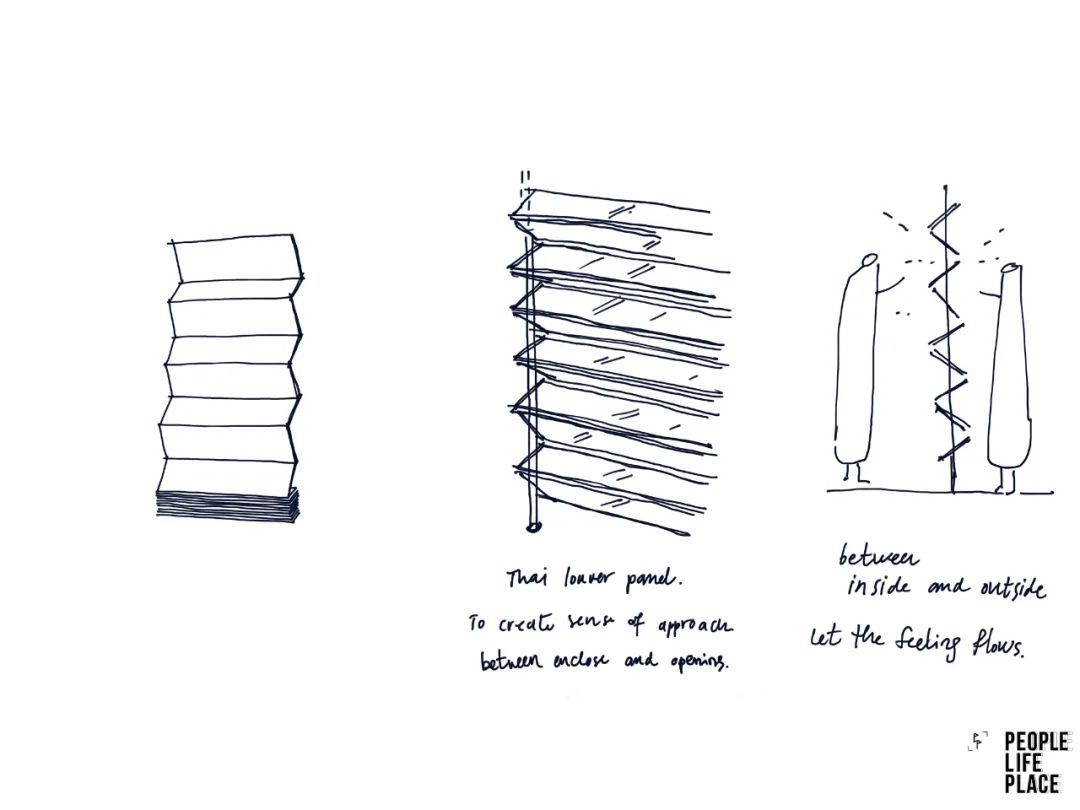 Thai louver panel.
To create sense of approach
between enclose and opening.
between
inside and outside
Let the feeling flows.
PEOPLE
LIFE
PLACE